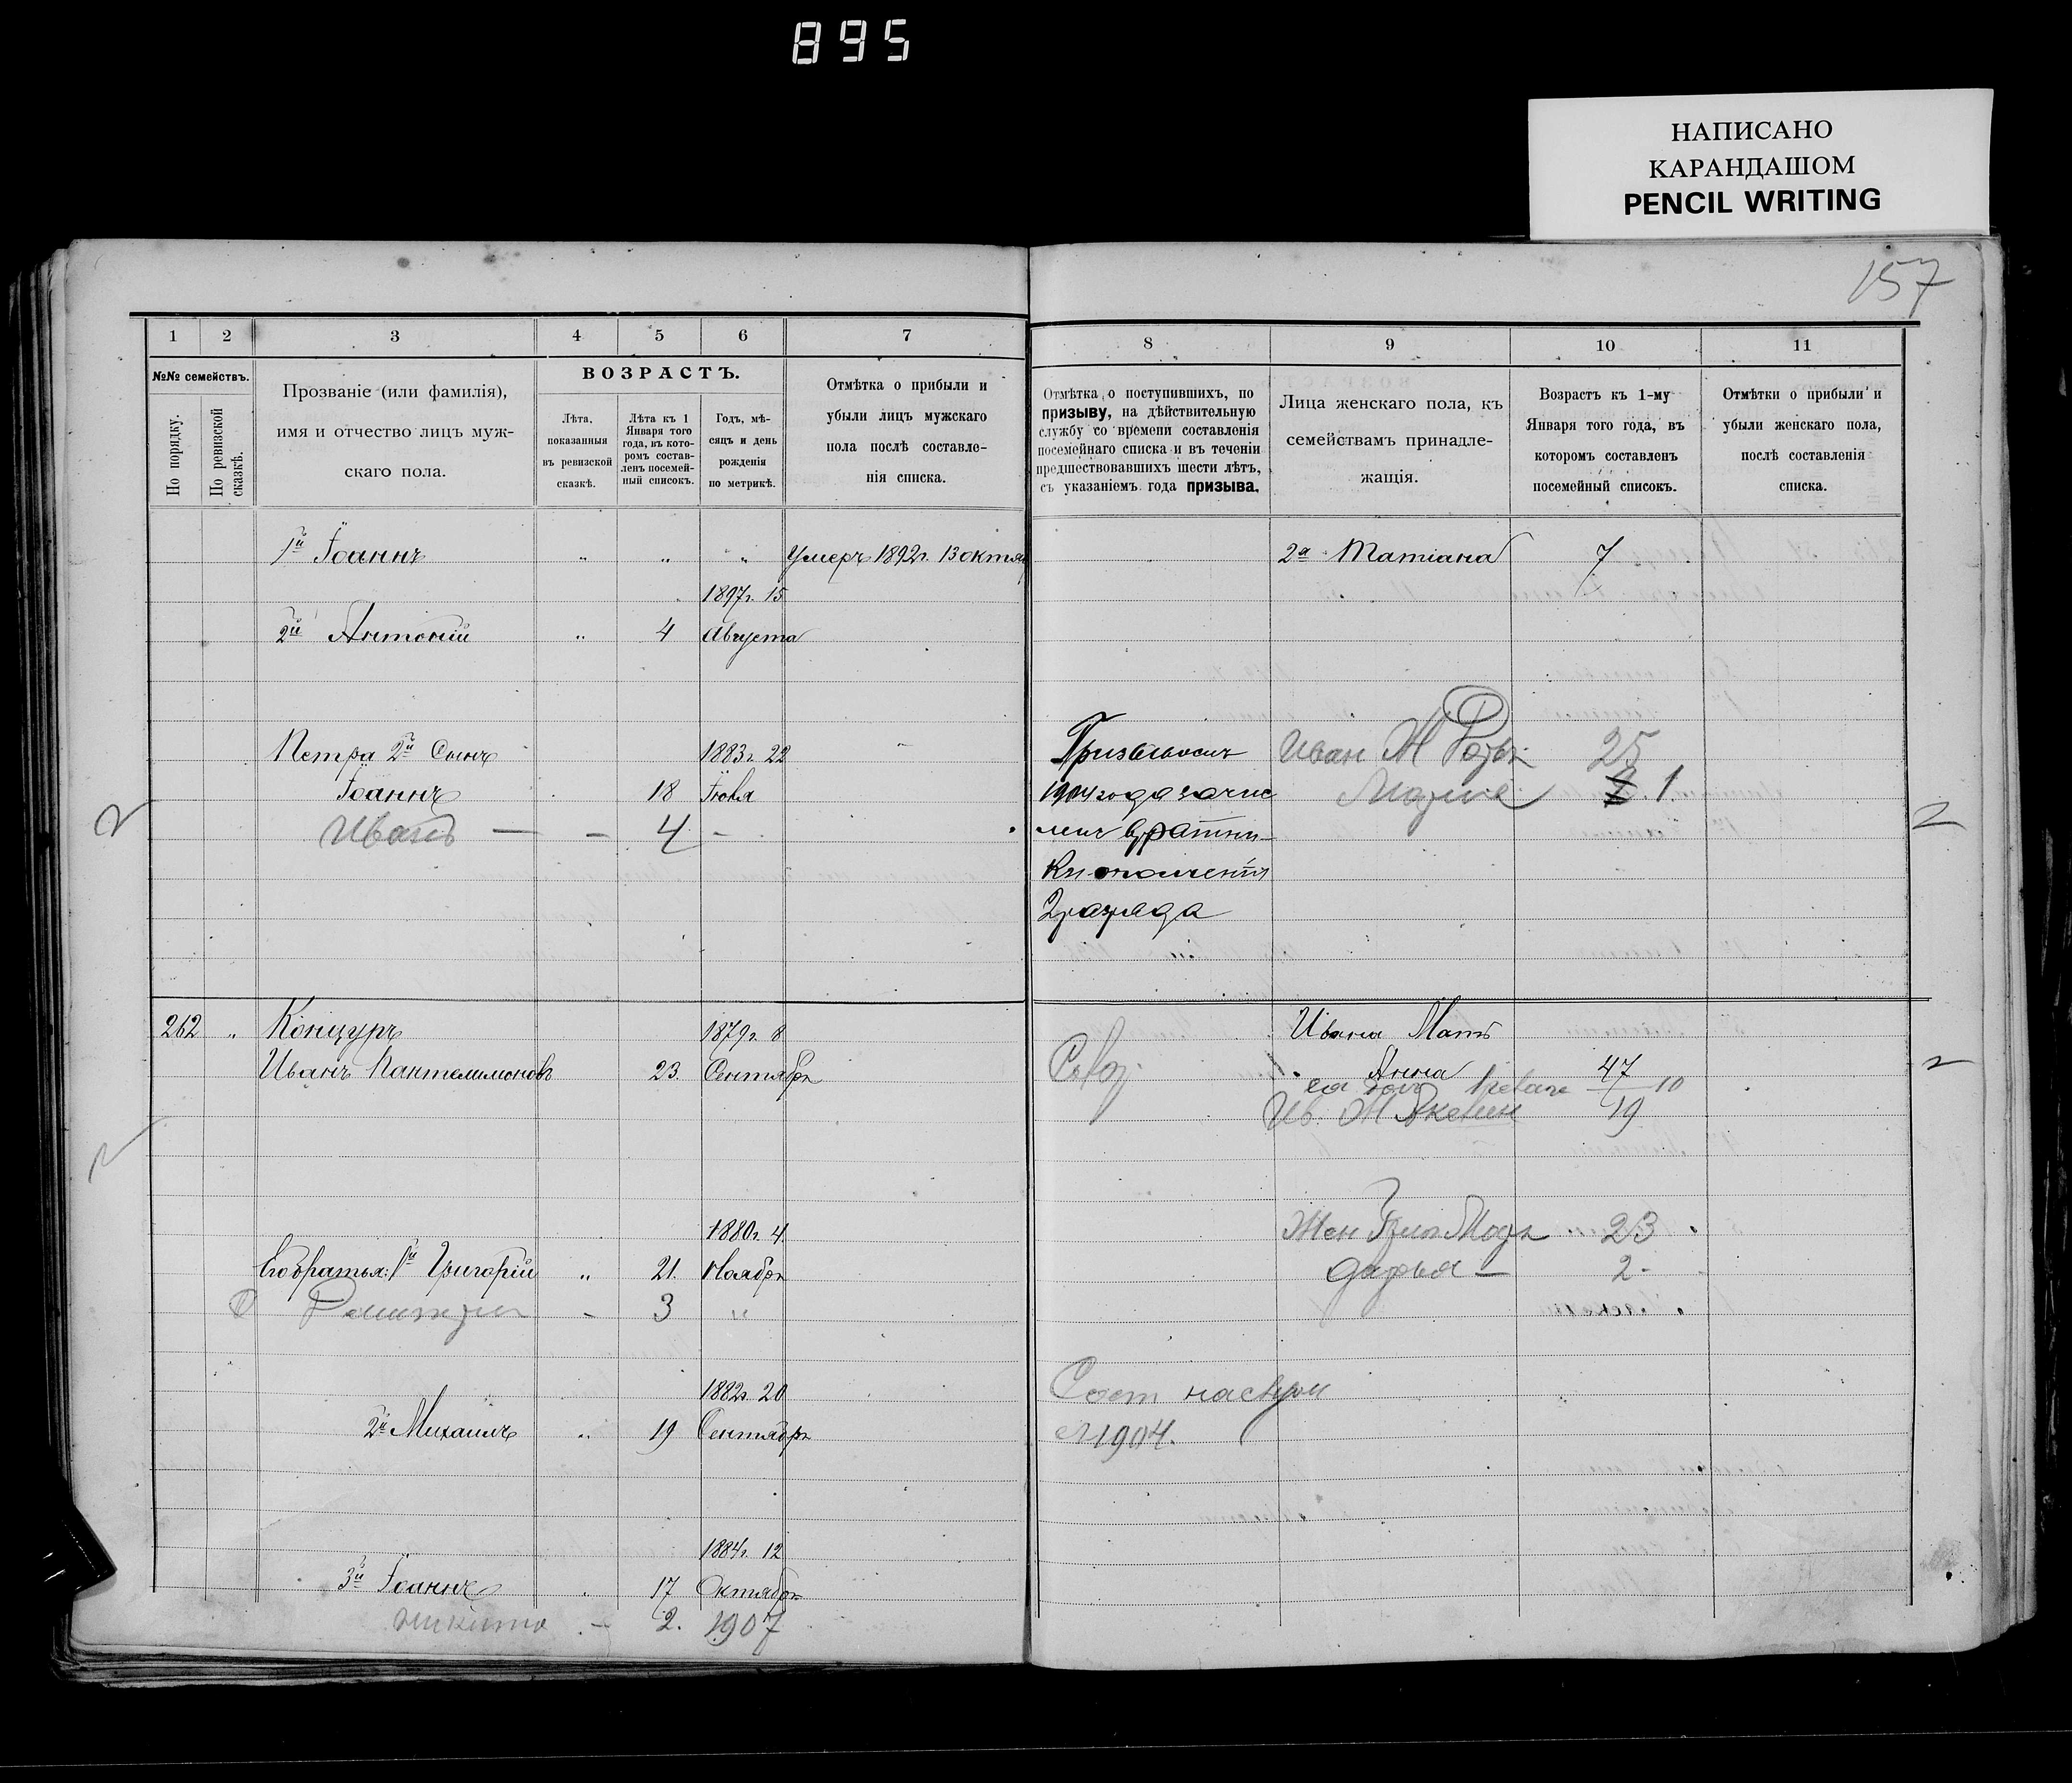 895
НАПИСАНО
КАРАНДАШОМ
PENCIL WRITING
157
1 2 3 4 5 6 7
№№ семействъ.
По порядку.
По ревизской сказкѣ.
Прозваніе (или фамилія),
имя и отчество лицъ муж-
скаго пола.
ВОЗРАСТЪ.
Лѣта,
показанныя
въ ревизской
сказкѣ.
Лѣта къ 1
Января того
года, въ кото-
ромъ состав-
ленъ посемей-
ный списокъ.
Годъ, мѣ-
сяцъ и день
рожденія
по метрикѣ.
Отмѣтка о прибыли и
убыли лицъ мужскаго
пола послѣ составле-
нія списка.
8 9 10 11
Отмѣтка о поступившихъ, по
призыву, на дѣйствительную
службу со времени составленія
посемейнаго списка и въ теченіи
предшествовавшихъ шести лѣтъ,
съ указаніемъ года призыва.
Лица женскаго пола, къ
семействамъ принадле-
жащія.
Возрастъ къ 1-му
Января того года, въ
которомъ составленъ
посемейный списокъ.
Отмѣтки о прибыли и
убыли женскаго пола,
послѣ составленія
списка.
1й Іоаннъ " " " Умеръ 1892г. 13 октяб
2а Татіана 7
1897г. 15
2й Антоній " 4 Августа
Петра 2й Сынъ 1883г. 22
Іоаннъ 18 Іюля
Иванъ — – 4 –
Призывался
1904 года зачис
ленъ в ратни-
ки ополченія
2 разряда
Иван Ж 25
Марія 1
262 " Концуръ 1879г. 8
Иванъ Пантелимоновъ 23. Сентября
Ивана Мать
Анна 47
10
Ив. Ж 19
1880г. 4
Его братья: 1й Григорій " 21. Ноября
Димитри – 3 "
Жен Григ 23
Дарья – 2 -
1882г. 20
2й Михаилъ " 19 Сентября
Сост
1904.
1884г. 12
3й Іоаннъ " 17 Октября
никита – 2. 1907